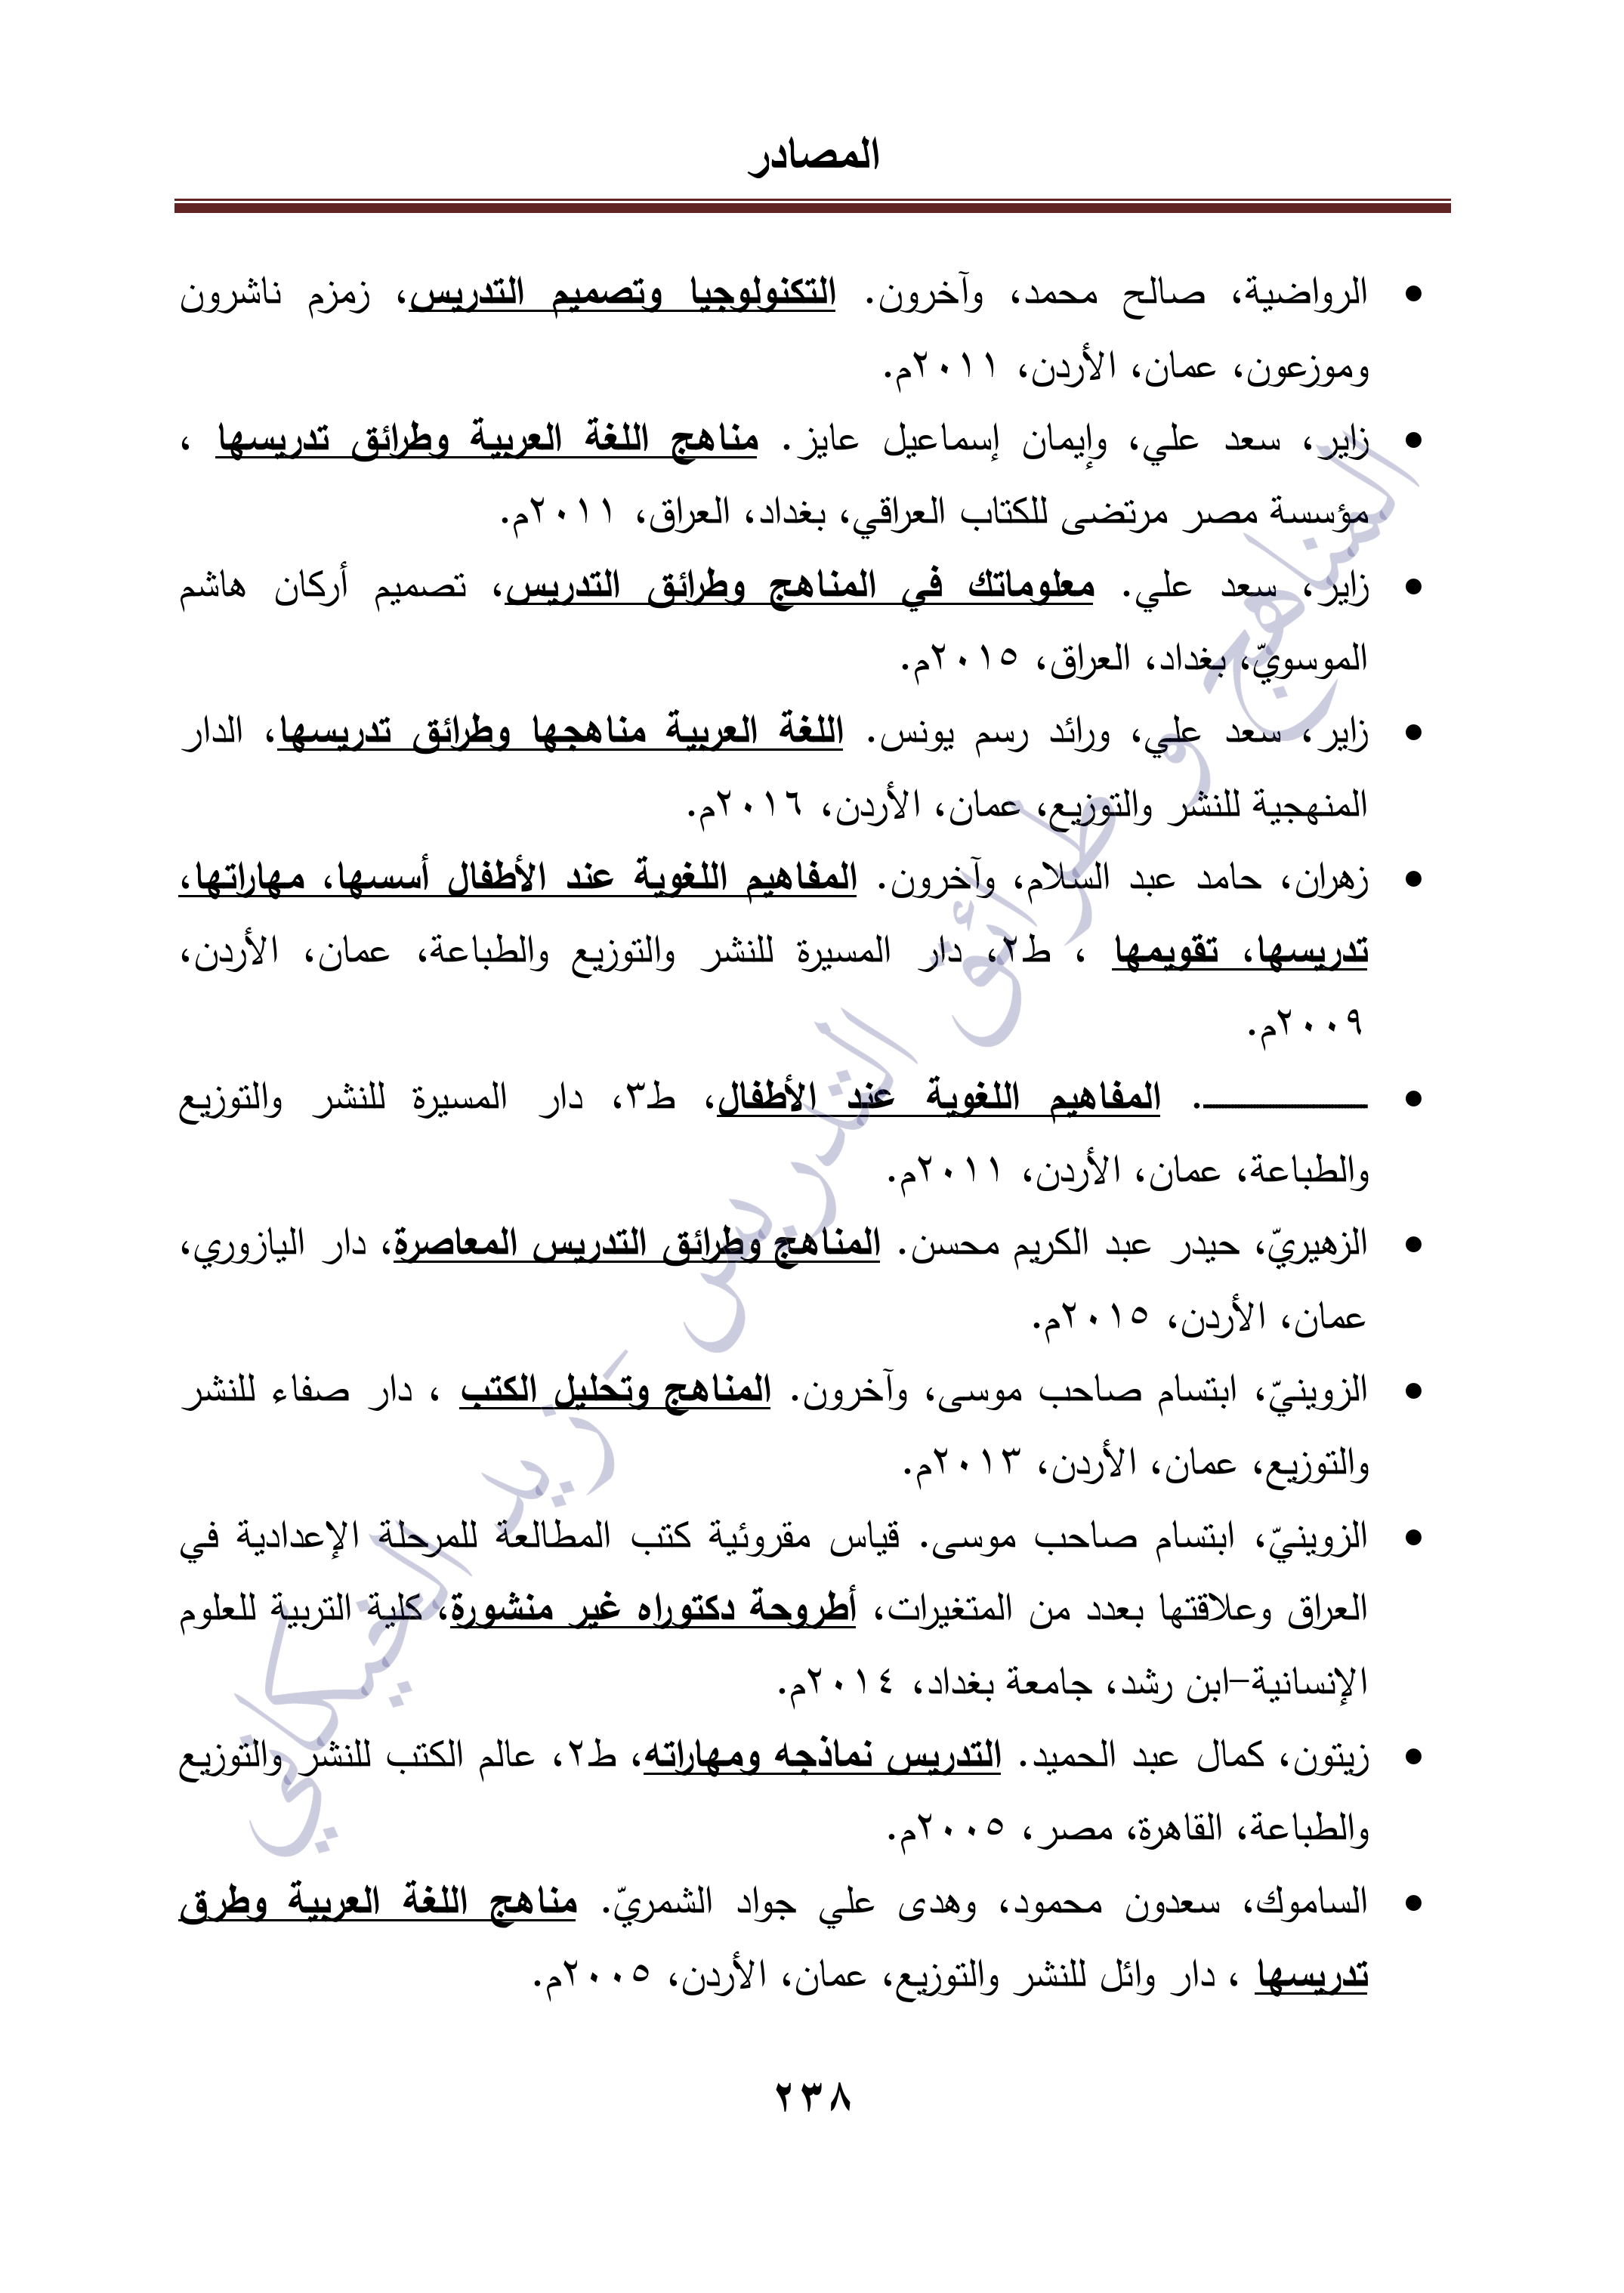 المصادر
• الرواضية، صالح محمد، وآخرون. التكنولوجيا وتصميم التدريس، زمزم ناشرون
وموزعون، عمان، الأردن، ٢٠١١م.
• زاير، سعد علي، وإيمان إسماعيل عايز. مناهج اللغة العربية وطرائق تدريسها ،
مؤسسة مصر مرتضى للكتاب العراقي، بغداد، العراق، ٢٠١١م.
• زاير، سعد علي. معلوماتك في المناهج وطرائق التدريس، تصميم أركان هاشم
الموسويّ، بغداد، العراق، ٢٠١٥م.
• زاير، سعد علي، ورائد رسم يونس. اللغة العربية مناهجها وطرائق تدريسها، الدار
المنهجية للنشر والتوزيع، عمان، الأردن، ٢٠١٦م.
• زهران، حامد عبد السلام، وآخرون. المفاهيم اللغوية عند الأطفال أسسها، مهاراتها،
تدريسها، تقويمها ، ط٢، دار المسيرة للنشر والتوزيع والطباعة، عمان، الأردن،
٢٠٠٩م.
• ــــــــــــــ. المفاهيم اللغوية عند الأطفال، ط٣، دار المسيرة للنشر والتوزيع
والطباعة، عمان، الأردن، ٢٠١١م.
• الزهيريّ، حيدر عبد الكريم محسن. المناهج وطرائق التدريس المعاصرة، دار اليازوري،
عمان، الأردن، ٢٠١٥م.
• الزوينيّ، ابتسام صاحب موسى، وآخرون. المناهج وتحليل الكتب ، دار صفاء للنشر
والتوزيع، عمان، الأردن، ٢٠١٣م.
• الزوينيّ، ابتسام صاحب موسى. قياس مقروئية كتب المطالعة للمرحلة الإعدادية في
العراق وعلاقتها بعدد من المتغيرات، أطروحة دكتوراه غير منشورة، كلية التربية للعلوم
الإنسانية–ابن رشد، جامعة بغداد، ٢٠١٤م.
• زيتون، كمال عبد الحميد. التدريس نماذجه ومهاراته، ط٢، عالم الكتب للنشر والتوزيع
والطباعة، القاهرة، مصر، ٢٠٠٥م.
• الساموك، سعدون محمود، وهدى علي جواد الشمريّ. مناهج اللغة العربية وطرق
تدريسها ، دار وائل للنشر والتوزيع، عمان، الأردن، ٢٠٠٥م.
٢٣٨
المناهج و طرائق التدريس - زيد الخيكاني